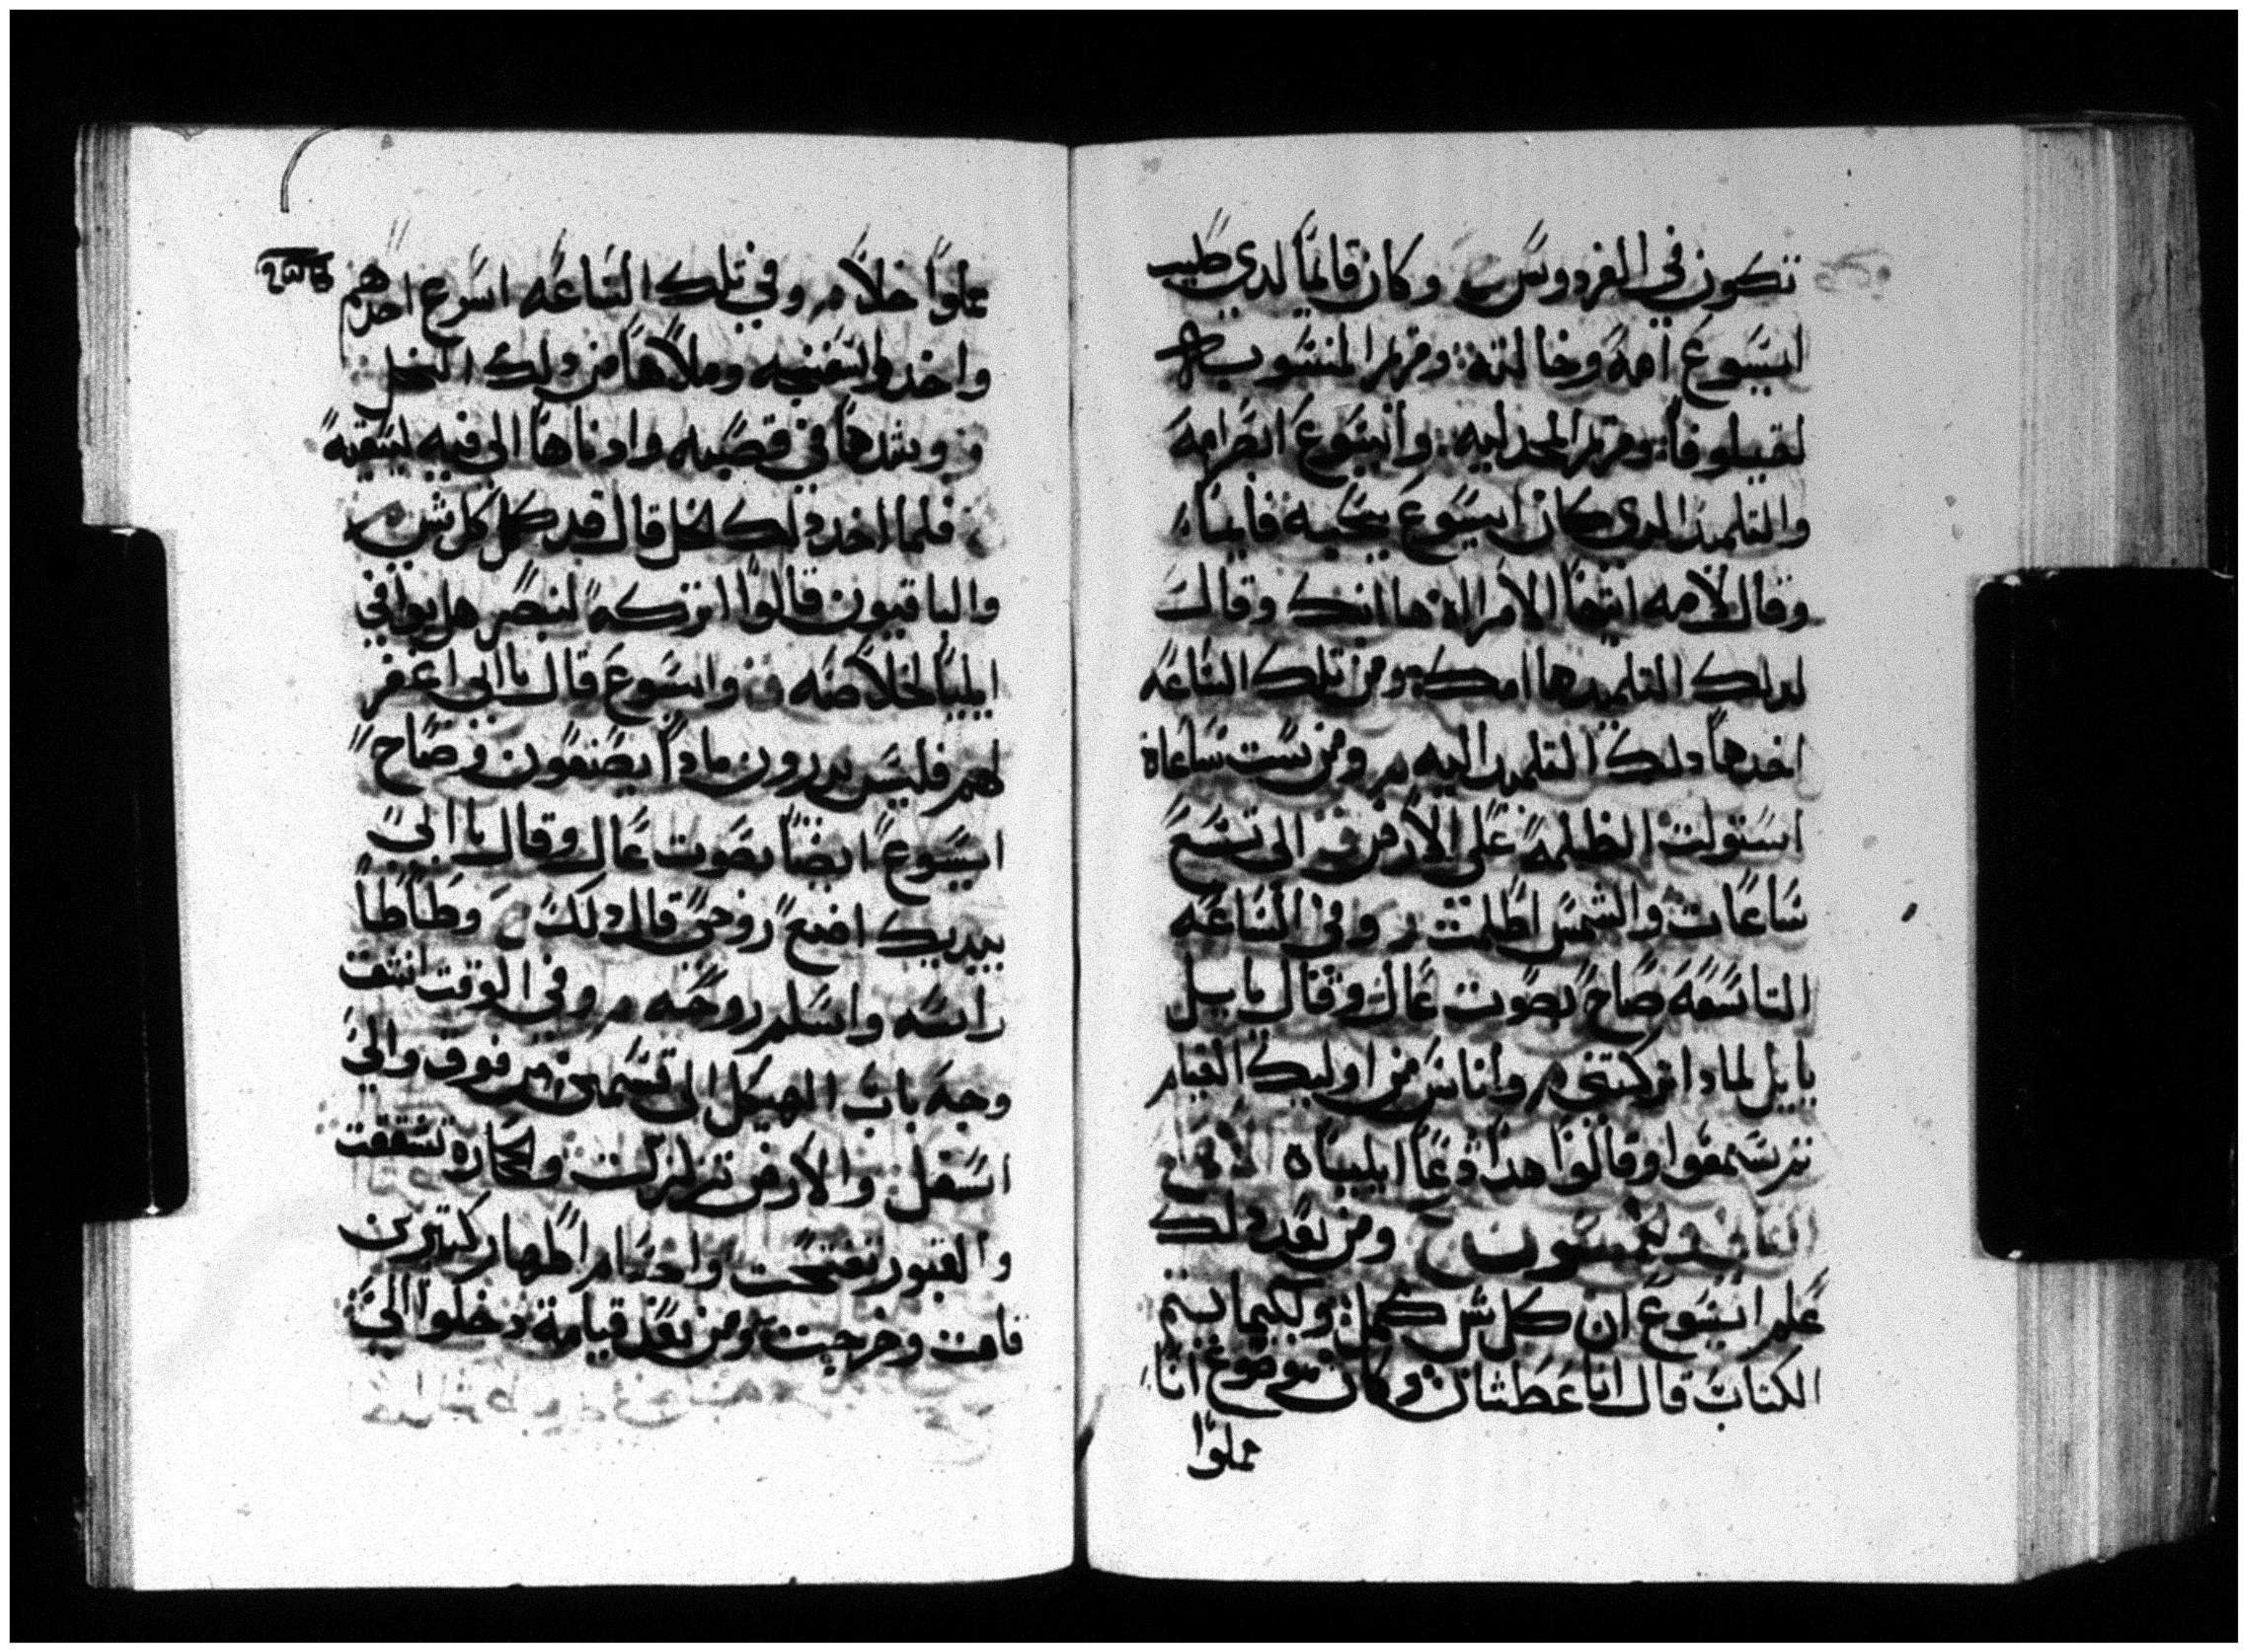 تكون في الفردوس وكان قائماً لدي صليب
ايسوع امه وخالته ومريم المنسوبه
لقيلوفا ومريم المجدليه وايسوع ابصر امه
والتلميذ الدي كان ايسوع يحبه قايماً
وقال لامه ايتها الامراة ها ابنك وقال
لدلك التلميد ها امك ومن تلك الساعه
اخدها دلك التلميد اليه ومن ست ساعاة
استولت الظلمة على الارض الى تسع
ساعات والشمس اظلمت وفي الساعه
التاسعه صاح بصوت عال وقال يا ييل
يا ييل لمادا تركتني واناس من اوليك القيام
ثم سمعوا وقالوا هدا دعا ايلياه
ومن بعد دلك
علم ايسوع ان كل شي كمل ولكيما يتم
الكتاب قال انا عطشان وكان موضوع انا
مملوا
مملوا خلا وفي تلك الساعه اسرع احدهم
واخد اسفنجه وملاها من دلك الخل
وشدها في قصبه وادناها الى فيه ليسقيه
فلما اخد دلك الخل قال قد كمل كل شي
والباقيون قالوا اتركه لنبصر هل يوافي
ايليا لخلاصه وايسوع قال يا ابي اغفر
لهم فليس يدرون مادا يصنعون وصاح
ايسوع ايضا بصوت عال وقال يا ابي
بيديك اضع روحي قال دلك وطاطا
راسه واسلم روحه وفي الوقت انشقت
وجه باب الهيكل الى قسمين من فوق والى
اسفل والارض تزلزلت والحجاره تشققت
والقبور تفتحت واجسام اطهار كتيرين
قامت وخرجت ومن بعد قيامة دخلوا الى